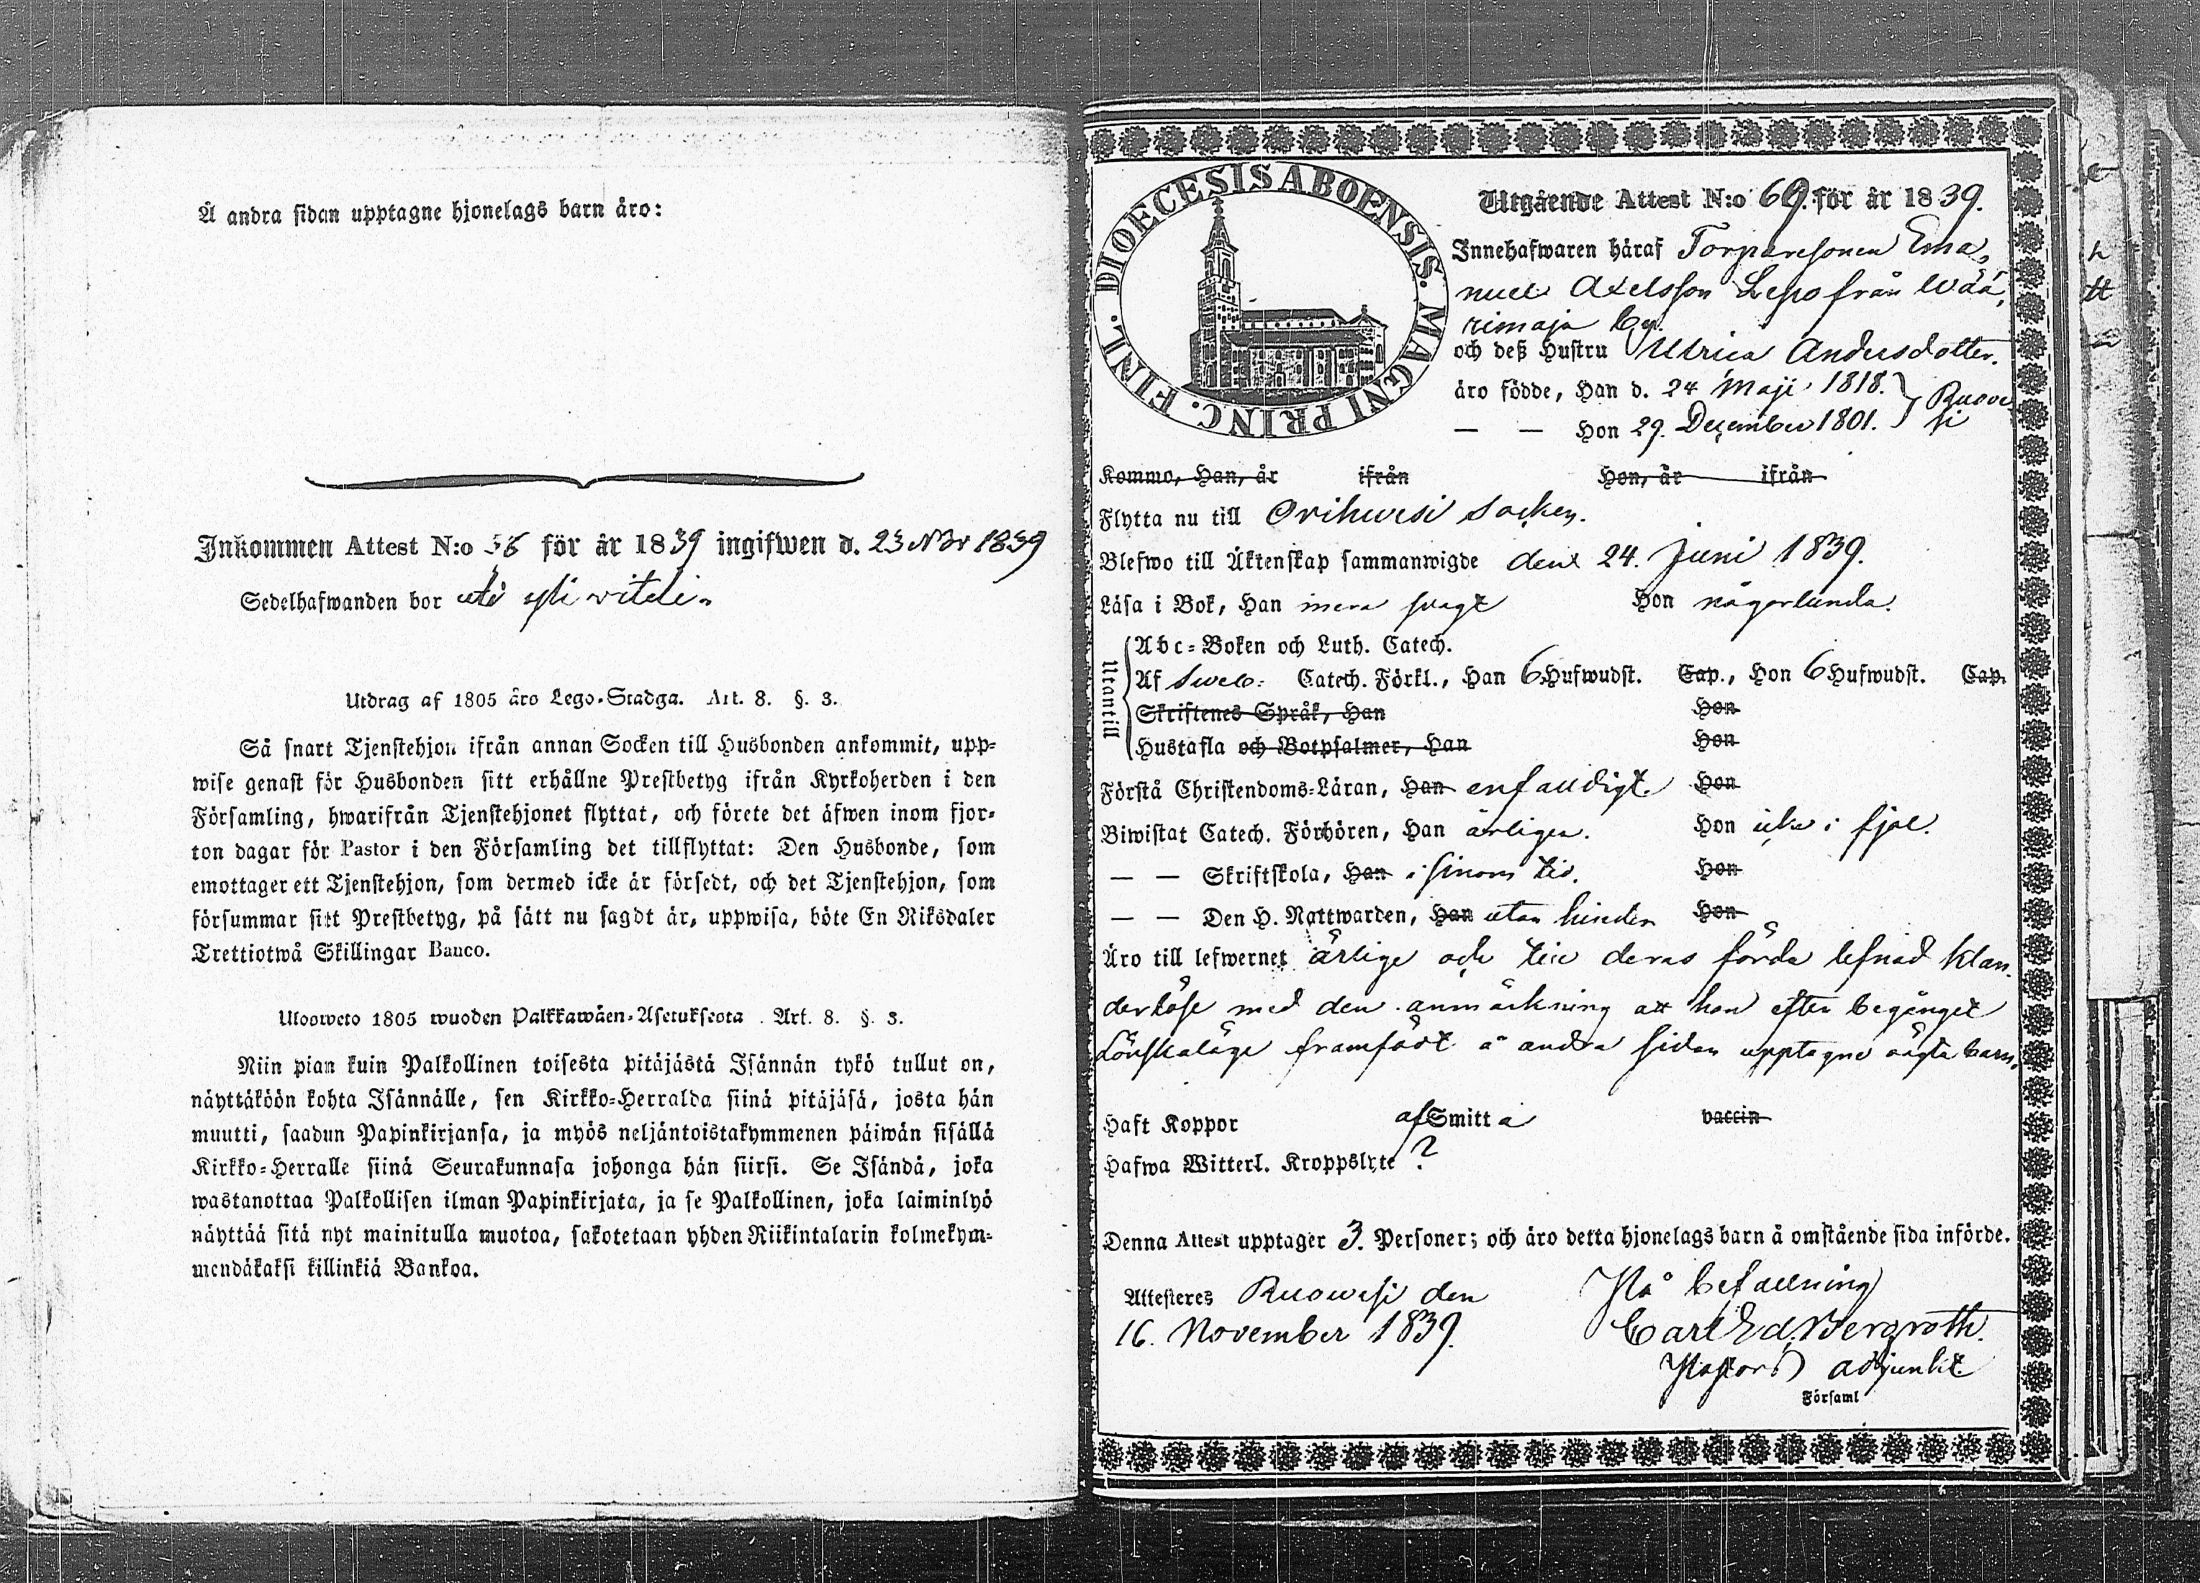 Å andra sidan upptagne hjonelags barn äro:
Inkommen Attest N:o 56 för år 1839 ingifwen d. 23 Nbr 1839
Sedelhafwanden bor uti
Utdrag af 1805 åro Lego-Stadga. Art. 8. §. 3.
Så snart Tjenstehjon ifrån annan Socken till Husbonden ankommit, upp-
wise genast för Husbonden sitt erhållne Prestbetyg ifrån Kyrkoherden i den
Församling, hwarifrån Tjenstehjonet flyttat, och förete det äfwen inom fjor-
ton dagar för Pastor i den Församling det tillflyttat: Den Husbonde, som
emottager ett Tjenstehjon, som dermed icke är försedt, och det Tjenstehjon, som
försummar sitt Prestbetyg, på sätt nu sagdt är, uppwisa, böte En Riksdaler
Trettiotwå Skillingar Banco.
Ulosweto 1805 wuoden Palkkawäen-Asetuksesta. Art. 8. §. 3.
Niin pian kuin Palkollinen toisesta pitäjästä Isännän tykö tullut on,
näyttäköön kohta Isännälle, sen Kirkko-Herralda siinä pitäjäsä, josta hän
muutti, saadun Papinkirjansa, ja myös neljäntoistakymmenen päiwän sisällä
Kirkko-Herralle siinä Seurakunnasa johonga hän siirsi. Se Isändä, joka
wastanottaa Palkollisen ilman Papinkirjata, ja se Palkollinen, joka laiminlyö
näyttää sitä nyt mainitulla muotoa, sakotetaan yhden Riikintalarin kolmekym-
mendäkaksi killinkiä Bankoa.
DIOECESIS ABOENSIS. MAGNI PRINC. FINL.
Utgående Attest N:o 69. för år 1839.
Innehafwaren häraf Torparesonen Ema-
nuel Axelsson Lepo från Wää-
rimaja by.
och deß Hustru Ulrica Andersdotter.
äro födde, Han d. 24 Maji 1818. } Ruowe-
— — Hon 29. December 1801. } si
Kommo, Han, år ifrån Hon, år ifrån
Flytta nu till Orihwesi Socken.
Blefwo till Äktenskap sammanwigde den 24. Juni 1839.
Läsa i Bok, Han mera swagt Hon någorlunda.
Utantill
Abc-Boken och Luth. Catech.
Af Sweb: Catech. Förkl., Han 6 Hufwudst. Cap., Hon 6 Hufwudst. Cap.
Skriftenes Språk, Han Hon
Hustafla och Botpsalmer, Han Hon
Förstå Christendoms-Läran, Han enfaldigt. Hon
Biwistat Catech. Förhören, Han årligen. Hon icke i fjol.
— — Skriftskola, Han i sinom tid. Hon
— — Den H. Nattwarden, Han utan hinder Hon
Äro till lefwernet ärlige och till deras förda lefnad klan-
derlöse med den anmärkning att hon efter begånget
Lönskaläge framfödt å andra sidan upptagne oägta barn.
Haft Koppor af Smitta vaccin
Hafwa Witterl. Kroppslyte ?
Denna Attest upptager 3. Personer; och äro detta hjonelags barn å omstående sida införde.
Attesteres Ruowesi den
16. November 1839.
På befallning
Carl Ed. Bergroth.
Pastors adjunkt
Församl